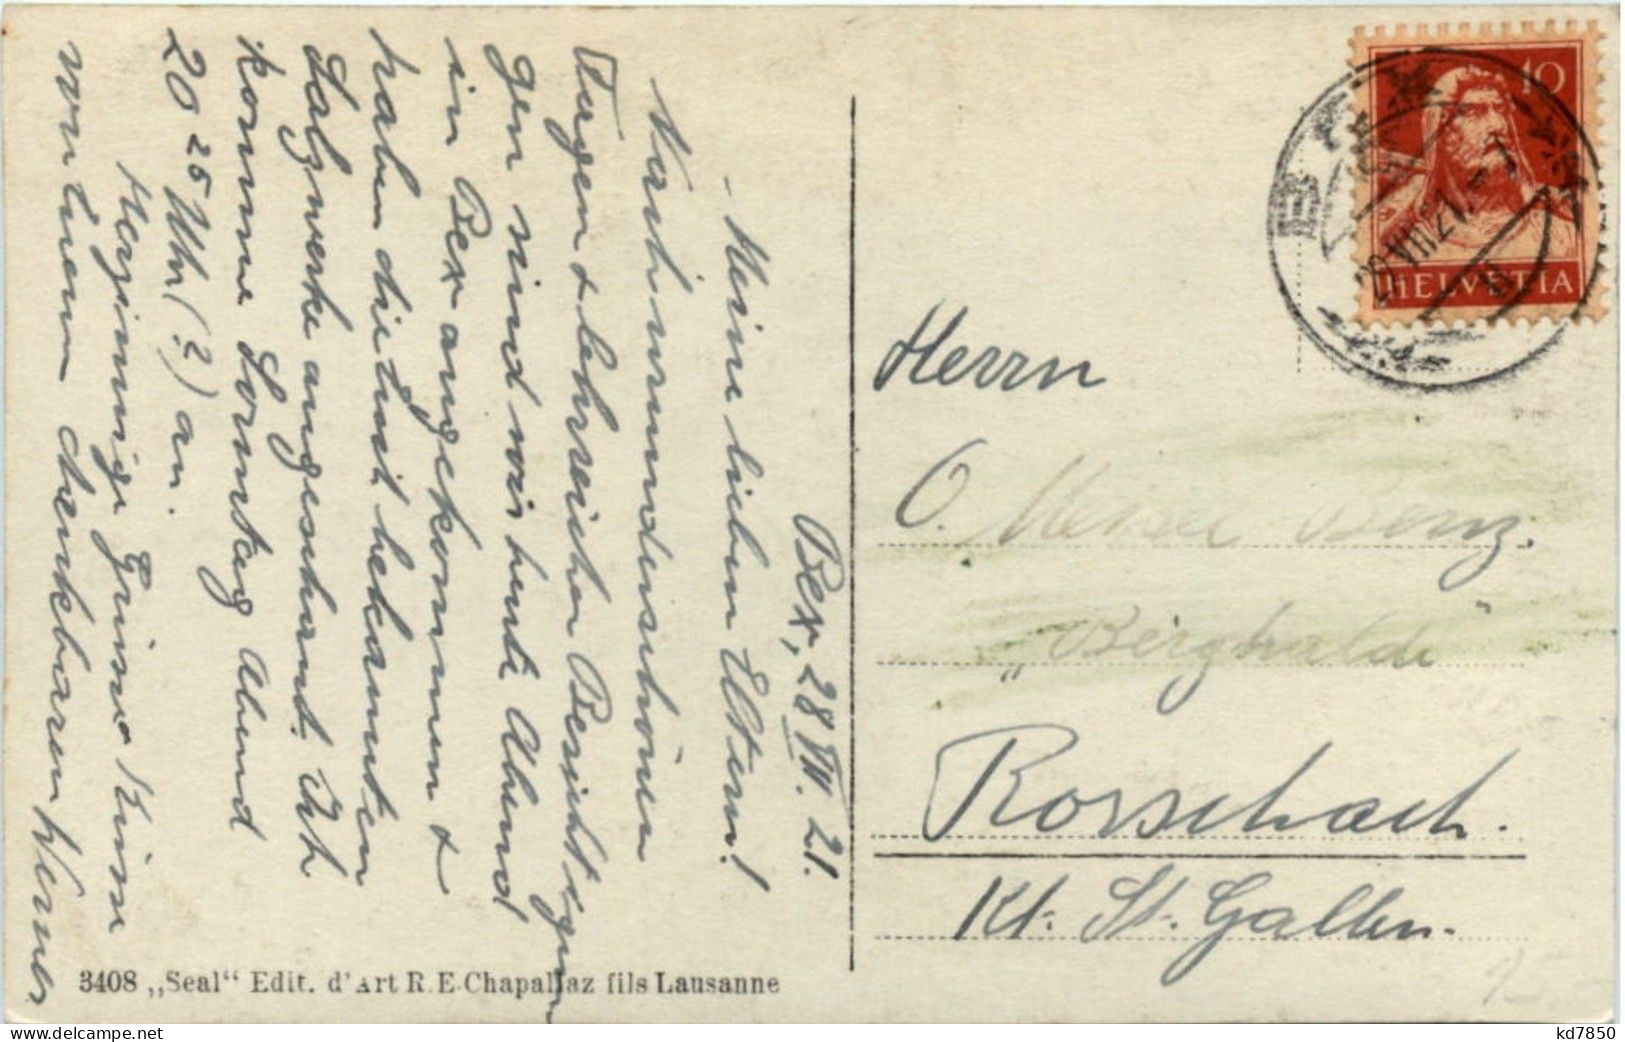 Bex, 28 VII. 21.
Meine lieben Eltern!
Nach wunderschönen
Tagen & lehrreichen Besichtigun
gen sind wir heute Abend
in Bex angekommen &
haben die weit bekannten
Salzwerke angeschaut. Ich
komme Samstag Abend
20 25 Uhr (?) an.
Herzinnige Grüsse & Küsse
von Euerm dankbaren Werner
HELVETIA
10
BEX
28 VII 21
Herrn
O. Benz.
„Berghalde“
Rorschach.
Kt. St. Gallen.
3408 „Seal“ Edit. d'Art R. E. Chapallaz fils Lausanne
www.delcampe.net
kd7850